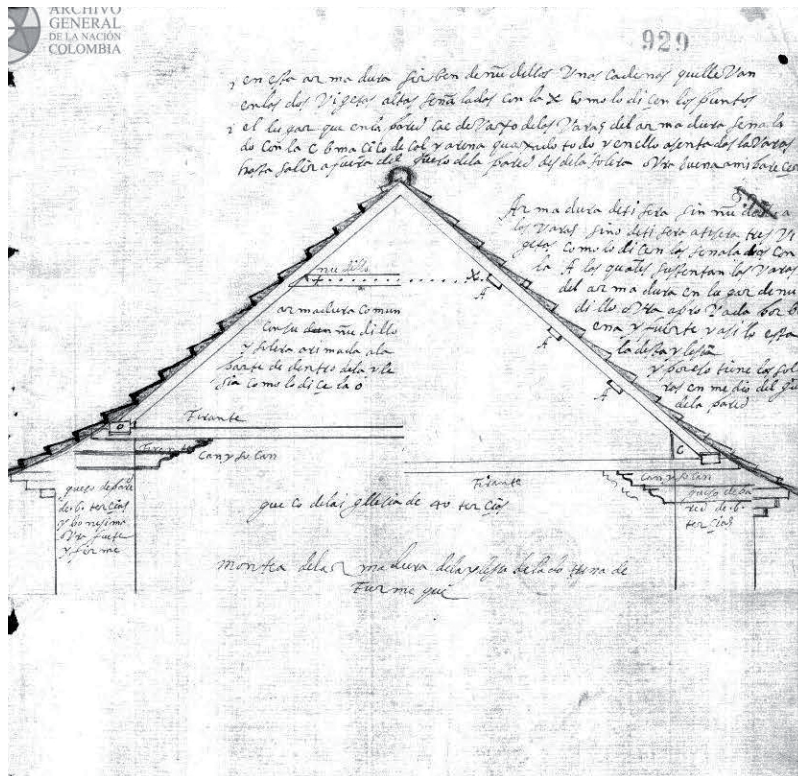 ARCHIVO
GENERAL
DE LA NACIÓN
COLOMBIA
929
en esta armadura sirben de nudellos Unas cadenas que lleVan
en las dos Vigetas altas señaladas con la X como lo dicen los puntos
el lugar que en la pared cae de Vaxo de las Varas del armadura señala
do con la C de cal y arena quaxado todo y en ello asentadas las Varas
hasta salir a fuera del gueso de la pared desde la solera obra buena
Armadura de tisera sin nudello a
las Varas sino de tisera a tisera tres Vi
getas como lo dicen los señalados con
la A las quales sustentan las Varas
del armadura en lugar de nu
dillo obra b
ena y fuerte y asi lo esta
la desta yglesia
y por eso tiene las sol
ras en medio del gu
de la pared
nudillo
X
A
A
A
armadura comun
con su nudillo
y solera arimada a la
parte de dentro de la yle
sia como lo dice la o
Tirante
o
Tirante
can y so can
C
Tirante
can y so can
gueso de pare
de 6 tercias
y bonisima
obra fuerte
y firme
gueso de pa
red de 6
tercias
gueco de las yglesia de 40 tercias
montea de la armadura de la yglesia de la dotrina de
Turmeque